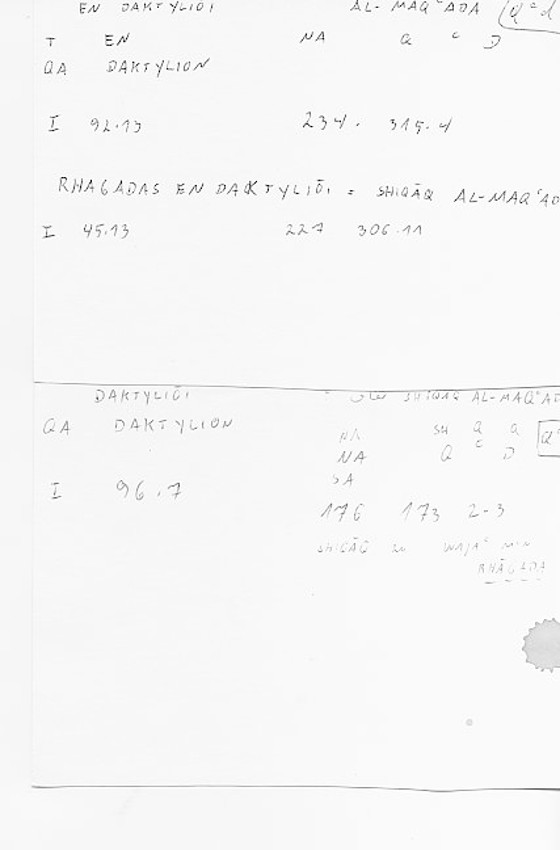 EN DAKTYLIŌI AL-MAQᶜADA QᶜD
T EN NA Q ᶜ D
QA DAKTYLION
I 92.13 234. 315.4
RHAGADAS EN DAKTYLIŌI = SHIQĀQ AL-MAQᶜAD
I 45.13 227 306.11
DAKTYLIŌI SHIQĀQ AL-MAQᶜAD
QA DAKTYLION NA SH Q Q Q
NA Q ᶜ D
SA
I 96.7
176 173 2-3
SHIQĀQ WAJAᶜ MIN
RHAGADA